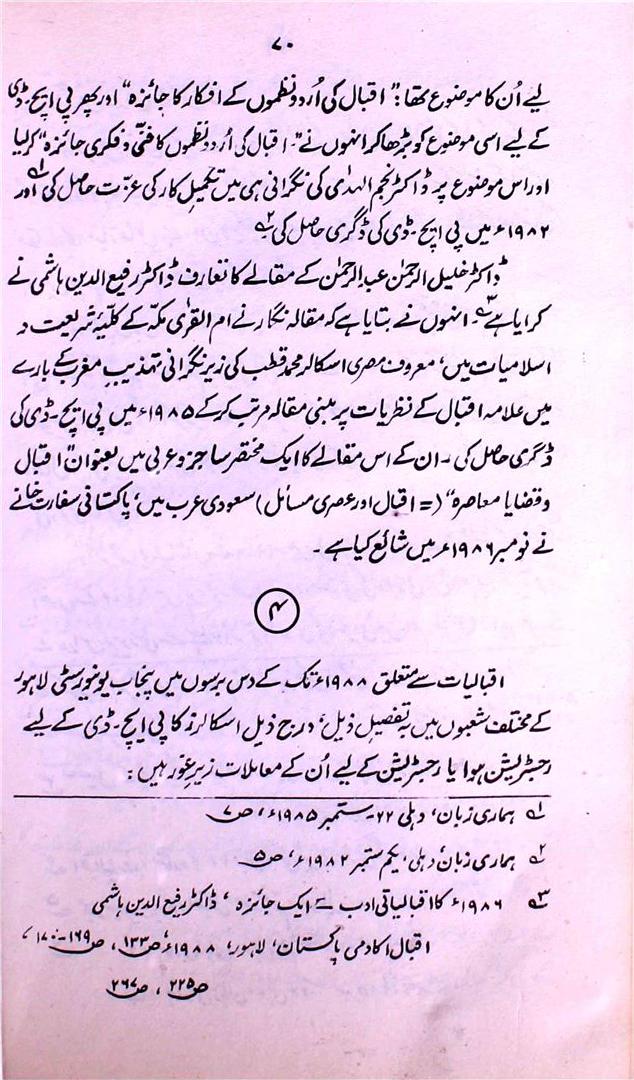 ۷۰
لیے اُن کا موضوع تھا: "اقبال کی اُردو نظموں کے افکار کا جائزہ" اور پھر پی ایچ۔ڈی
کے لیے اسی موضوع کو بڑھا کر انہوں نے "۔ اقبال کی اُردو نظموں کا فنّی و فکری جائزہ" کر لیا
اور اس موضوع پر ڈاکٹر نجم الہدٰی کی نگرانی ہی میں تکمیلِ کار کی عزّت حاصل کی۱؎ اور
۱۹۸۲ء میں پی ایچ۔ڈی کی ڈگری حاصل کی۔۲؎
ڈاکٹر خلیل الرحمٰن عبدالرحمٰن کے مقالے کا تعارف ڈاکٹر رفیع الدین ہاشمی نے
کرایا ہے۳؎۔ انہوں نے بتایا ہے کہ مقالہ نگار نے ام القرٰی مکّہ کے کلیۂ شریعت و
اسلامیات میں، معروف مصری اسکالر محمد قطب کی زیرِ نگرانی تہذیبِ مغرب کے بارے
میں علامہ اقبال کے نظریات پر مبنی مقالہ مرتب کر کے ۱۹۸۵ء میں پی ایچ۔ڈی کی
ڈگری حاصل کی۔ ان کے اس مقالے کا ایک مختصر سا جزو عربی میں بعنوان "اقبال
و قضایا معاصرہ" (= اقبال اور عصری مسائل) سعودی عرب میں، پاکستانی سفارت خانے
نے نومبر ۱۹۸۶ء میں شائع کیا ہے۔
۴
اقبالیات سے متعلق ۱۹۸۸ء تک کے دس برسوں میں پنجاب یونیورسٹی لاہور
کے مختلف شعبوں میں بہ تفصیلِ ذیل، درج ذیل اسکالرز کا پی ایچ۔ڈی کے لیے
رجسٹریشن ہوا یا رجسٹریشن کے لیے اُن کے معاملات زیرِ غور ہیں:
۱؎ ہماری زبان، دہلی ۲۲۔ستمبر ۱۹۸۵ء، ص۷
۲؎ ہماری زبان، دہلی، یکم ستمبر ۱۹۸۲ء، ص۵
۳؎ ۱۹۸۶ء کا اقبالیاتی ادب = ایک جائزہ، ڈاکٹر رفیع الدین ہاشمی
اقبال اکادمی پاکستان، لاہور، ۱۹۸۸ء، ص۱۳۳، ص۱۶۹-۱۷۰،
ص۲۲۵، ص۲۶۷